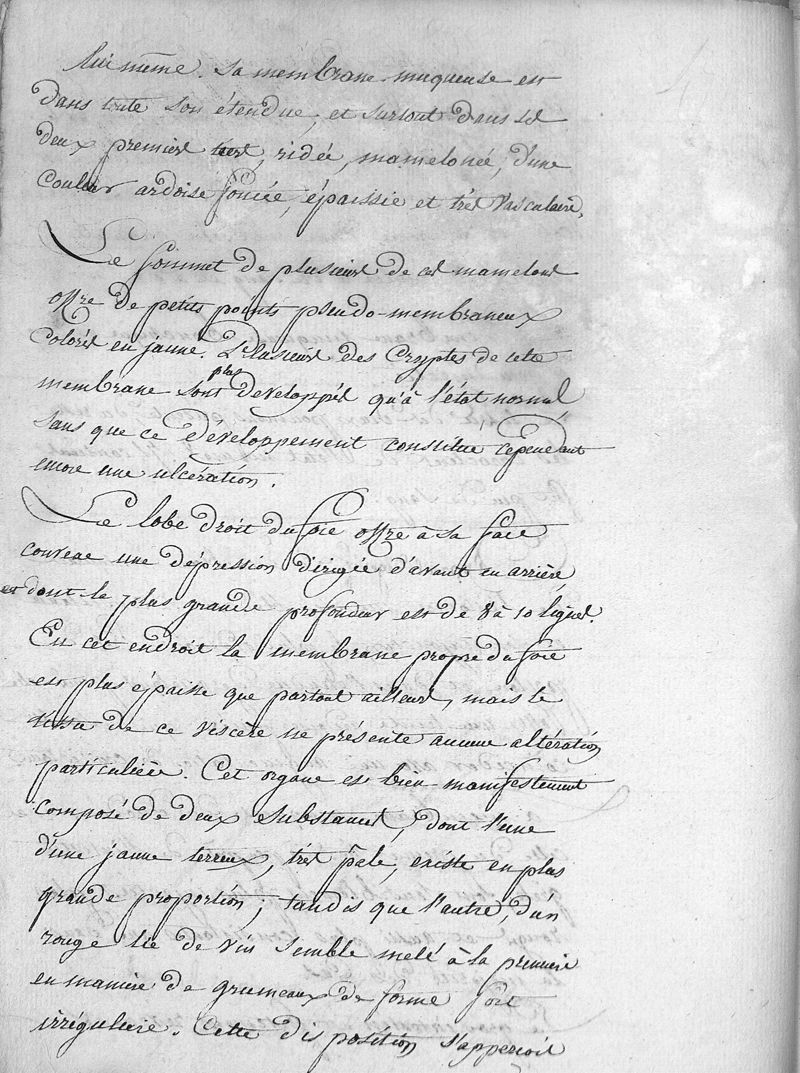 lui même. Sa membrane muqueuse est
dans toute son étendue, et surtout dans les
deux premiers tiers, ridée, mamelonée, d'une
couleur ardoise foncée, épaissie et très vasculaire.
Le sommet de plusieurs de ces mamelons
offre de petits points pseudo-membraneux
colorés en jaune. Plusieurs des cryptes de cette
membrane sont plus developpés qu'à l'état normal
sans que ce développement constitue cependant
encore une ulcération.
Le lobe droit du foie offre à sa face
convexe une dépression dirigée d'avant en arrière,
et dont la plus grande profondeur est de 8 à 10 lignes.
En cet endroit la membrane propre du foie
est plus épaisse que partout ailleurs, mais le
tissu de ce viscère ne présente aucune altération
particulière. Cet organe est bien manifestement
composé de deux substances, dont l'une
d'une jaune terreux, très pâle, existe en plus
grande proportion; tandis que l'autre, d'un
rouge lie de vin semble melé à la première
en manière de grumeaux de forme fort
irrégulière. Cette disposition s'apperçoit